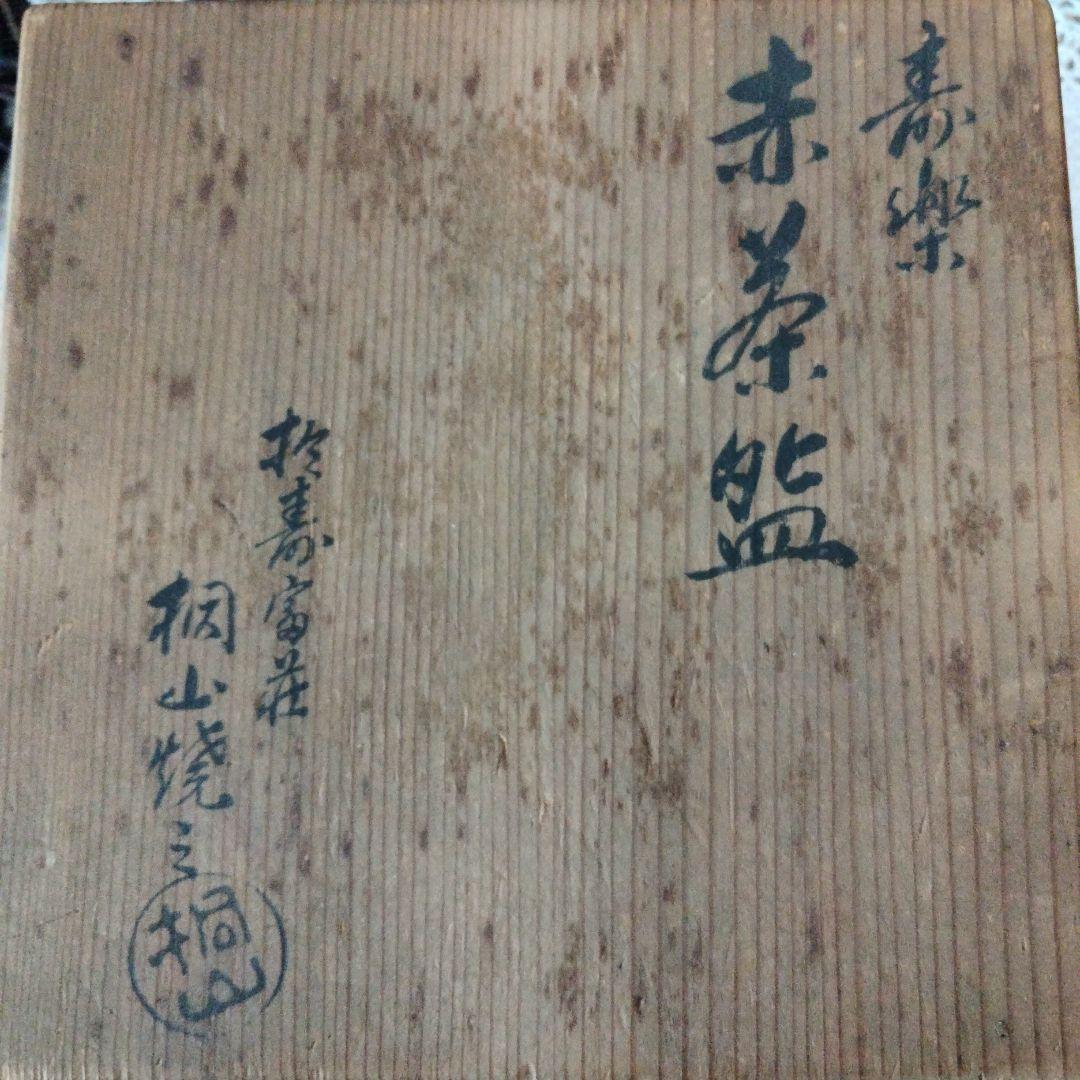 壽樂
赤茶盌
於壽富荘
桐山焼之
桐山